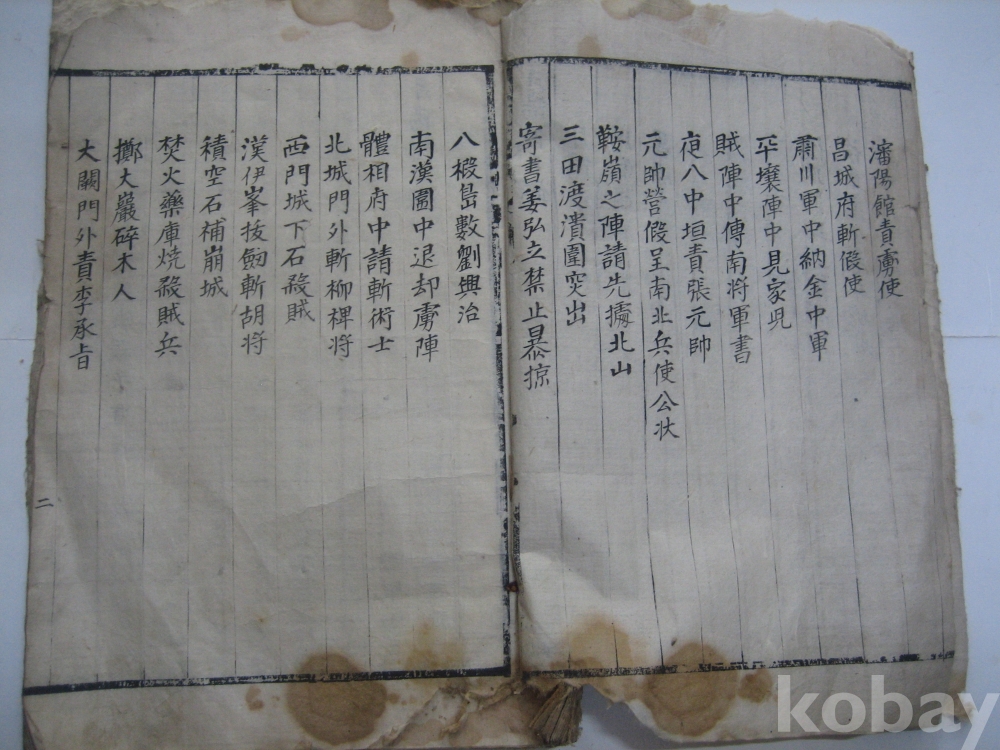 瀋陽館責虜使
昌城府斬假使
肅川軍中納金中軍
平壤陣中見家児
賊陣中傳南將軍書
夜八中垣責張元帥
元帥營假呈南北兵使公状
鞍嶺之陣請先據北山
三田渡潰圍突出
寄書姜弘立禁止暴掠
八椵島數劉興治
南漢圍中退却虜陣
體相府中請斬術士
北城門外斬柳裨將
西門城下石殺賊
漢伊峯拔劒斬胡將
積空石補崩城
焚火藥庫燒殺賊兵
擲大巖碎木人
大闕門外責李承旨
二
kobay